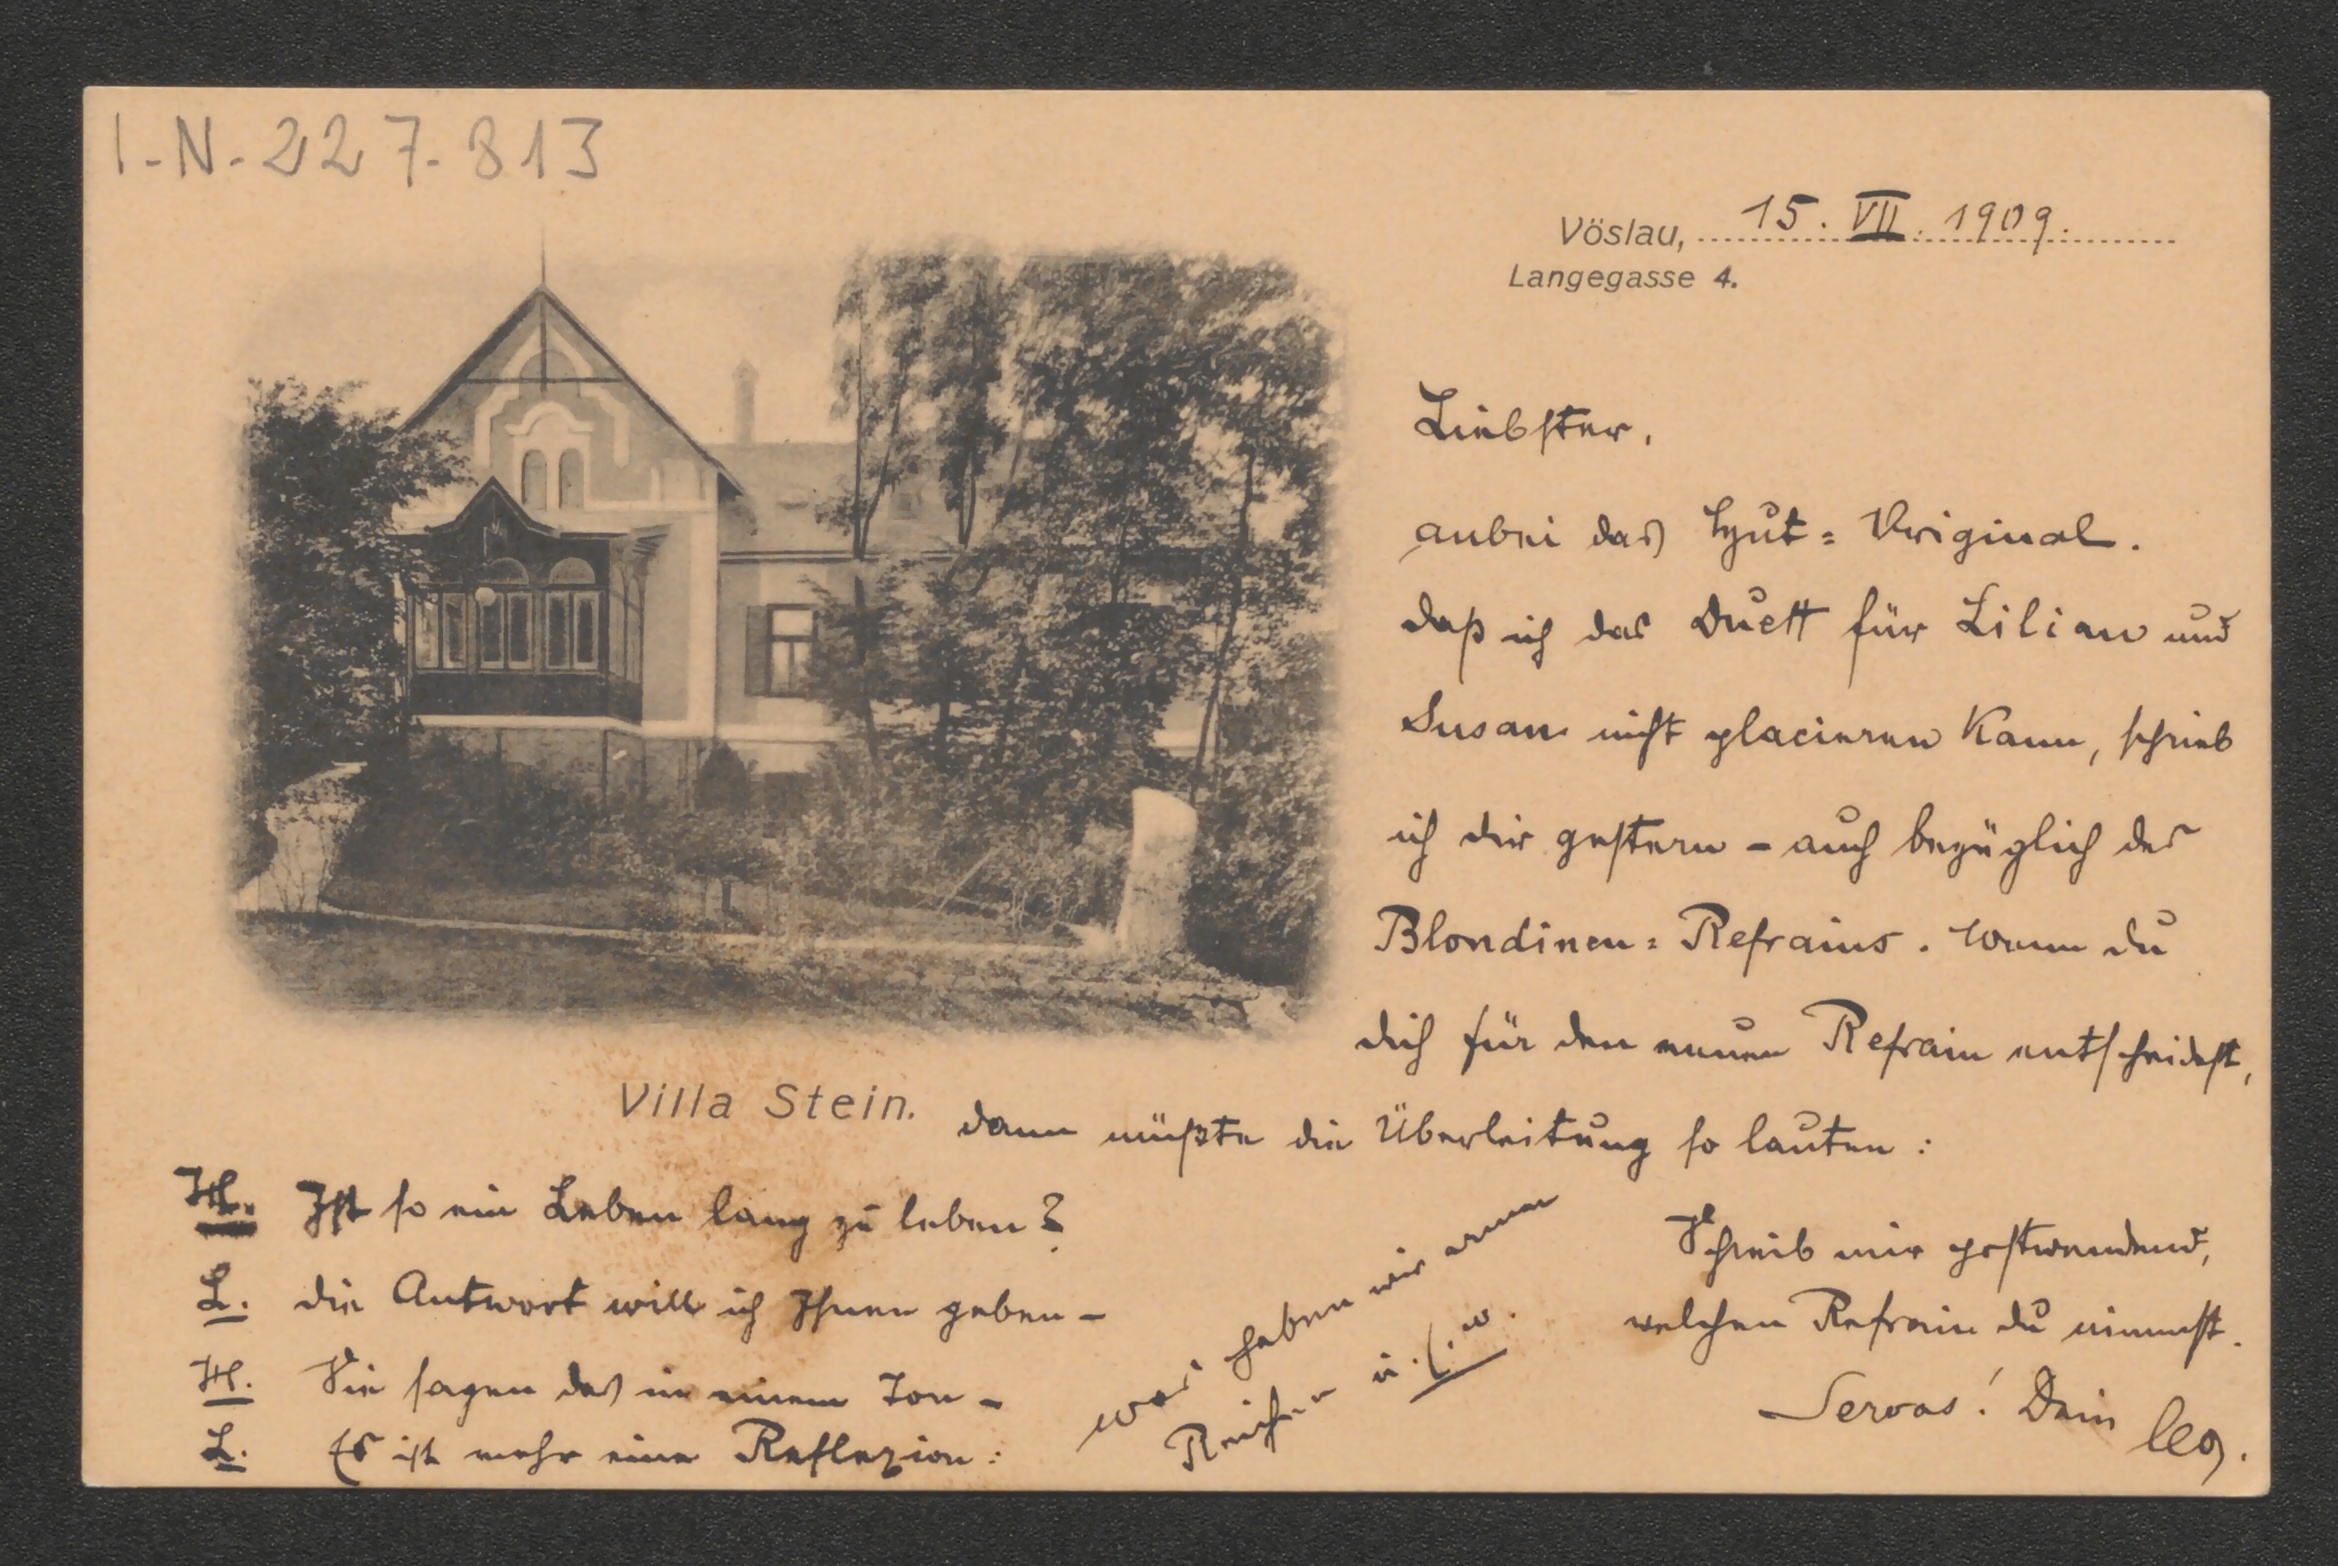 I-N-227.813
Vöslau, 15. VII. 1909.
Langegasse 4.
Liebster,
anbei das Hut= Original.
Daß ich das Duett für Lilian und
Susan nicht placieren kann, schrieb
ich dir gestern – auch bezüglich des
Blondinen= Refrains. Wenn du
dich für den neuen Refrain entscheidest,
Villa Stein.
dann müßte die Überleitung so lauten:
H. Ist so ein Leben lang zu leben?
L. Die Antwort will ich Ihnen geben –
H. Sie sagen das in einem Ton –
L. Es ist mehr eine Reflexion:
was haben wir armen
Reichen u.s.w.
Schreib mir postwendend,
welchen Refrain du nimmst.
Servas! Dein Leo.